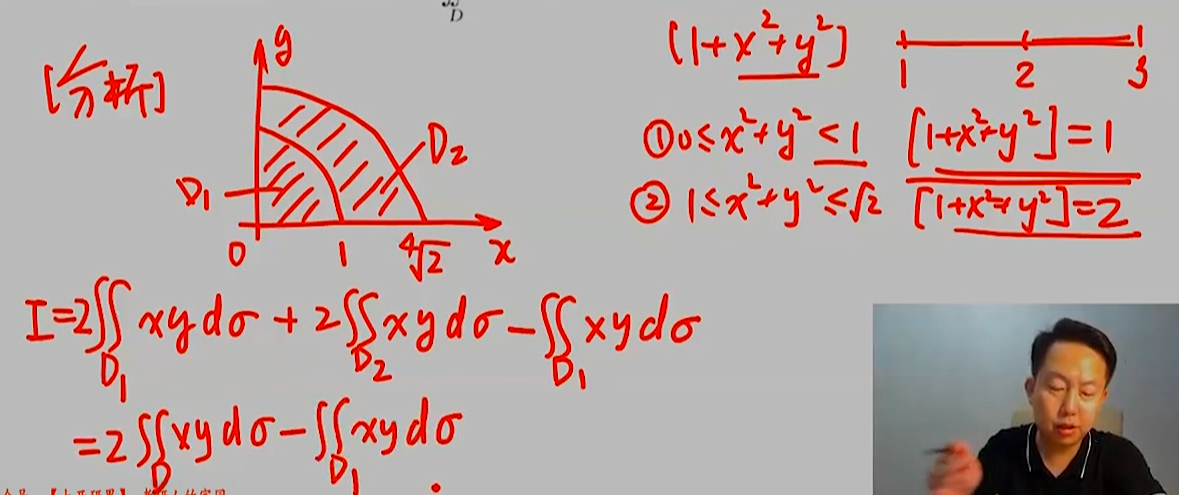 ∬
D
[分析]
y
D₂
D₁
0 1 ∜2 x
[1+x²+y²]
1 2 3
① 0≤x²+y²<1 [1+x²+y²]=1
② 1≤x²+y²≤√2 [1+x²+y²]=2
I=2∬_{D₁} xydσ + 2∬_{D₂} xydσ − ∬_{D₁} xydσ
=2∬_{D} xydσ − ∬_{D₁} xydσ